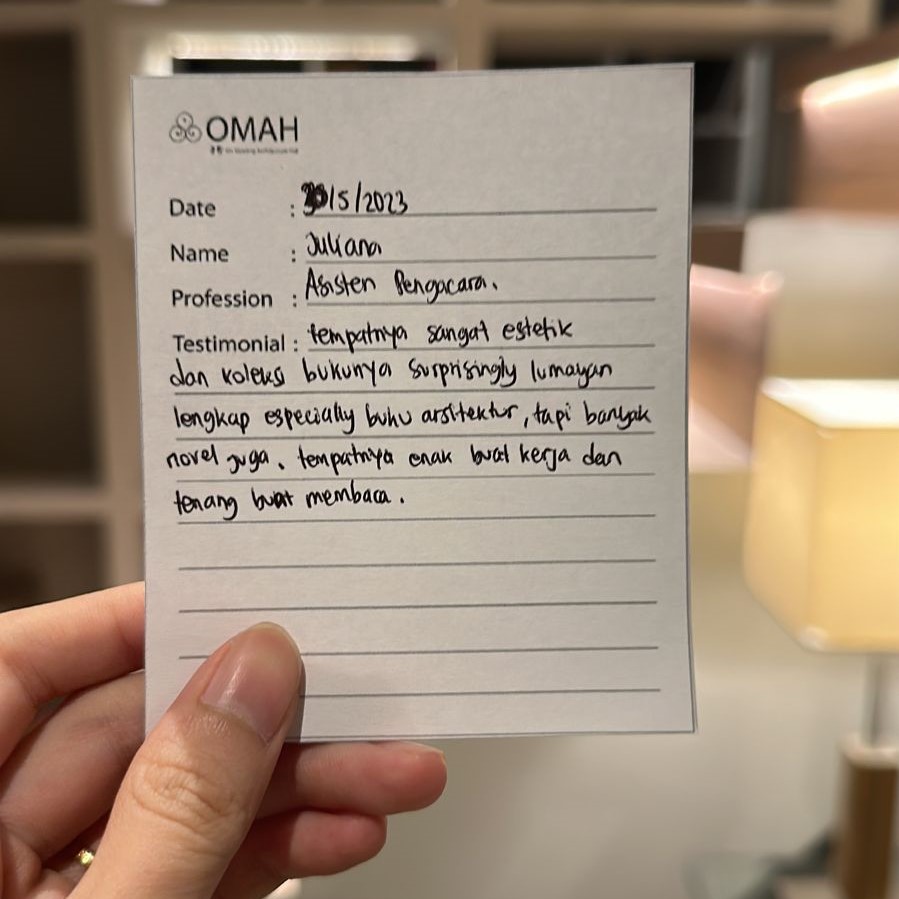 OMAH
Date : 30/5/2023
Name : Juliana
Profession : Asisten Pengacara.
Testimonial : tempatnya sangat estetik
dan koleksi bukunya surprisingly lumayan
lengkap especially buku arsitektur, tapi banyak
novel juga. tempatnya enak buat kerja dan
tenang buat membaca.